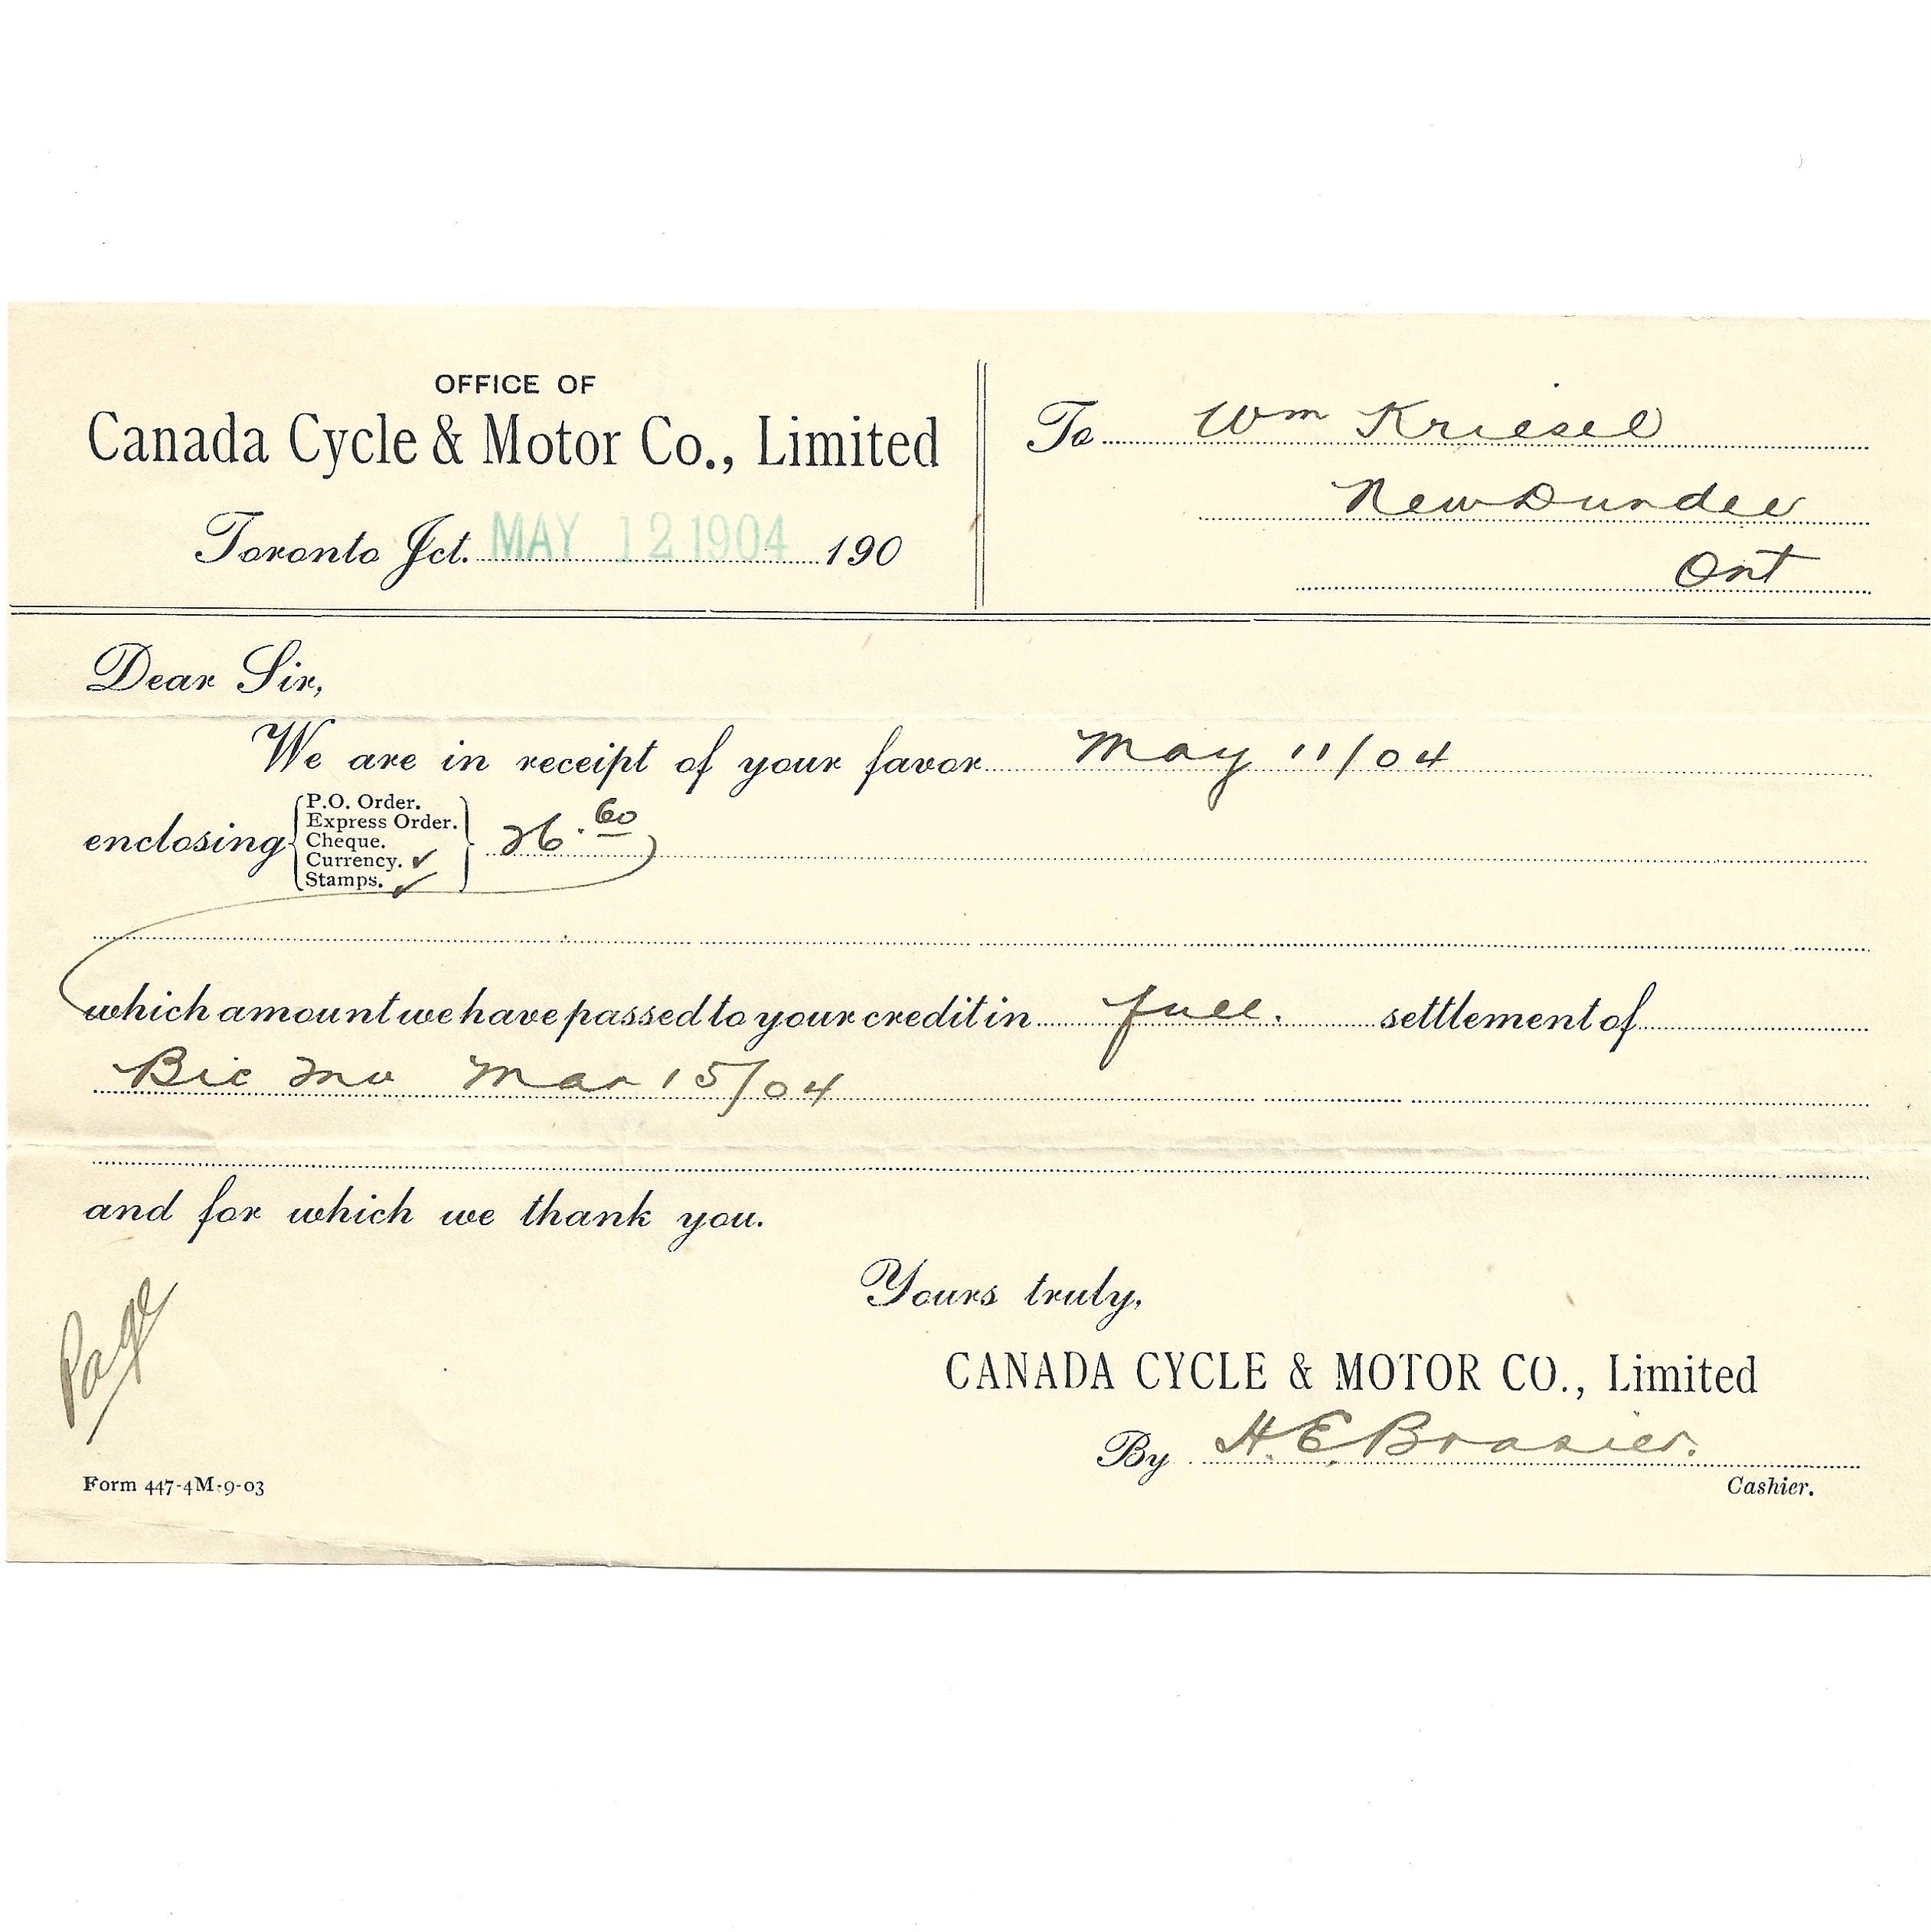 OFFICE OF
Canada Cycle & Motor Co., Limited
Toronto Jct. MAY 12 1904 190
To Wm Kriesel
New Dundee
Ont
Dear Sir,
We are in receipt of your favor May 11/04
enclosing
P.O. Order.
Express Order.
Cheque.
Currency. ✓
Stamps. ✓
26.60
which amount we have passed to your credit in full. settlement of
Bic Inv Mar 15/04
and for which we thank you.
Yours truly,
CANADA CYCLE & MOTOR CO., Limited
By H. E. Brasier.
Cashier.
Page
Form 447-4M-9-03